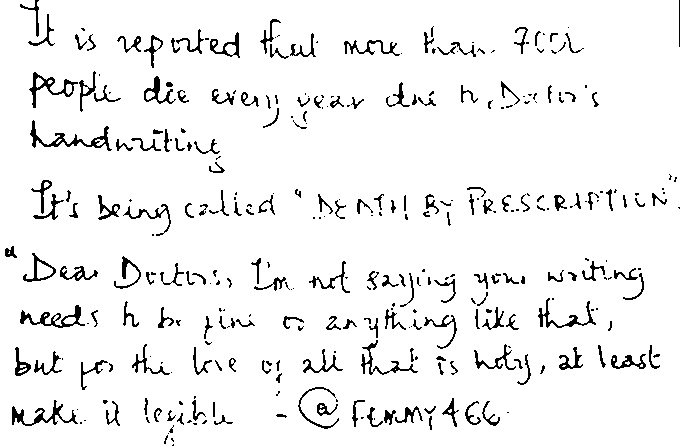 It is reported that more than
people die every year due to Doctor's
handwriting
It's being called "DEATH BY PRESCRIPTION".
"Dear Doctors, I'm not saying your writing
needs to be fine or anything like that,
but for the love of all that is holy, at least
make it legible - @FEMMY466